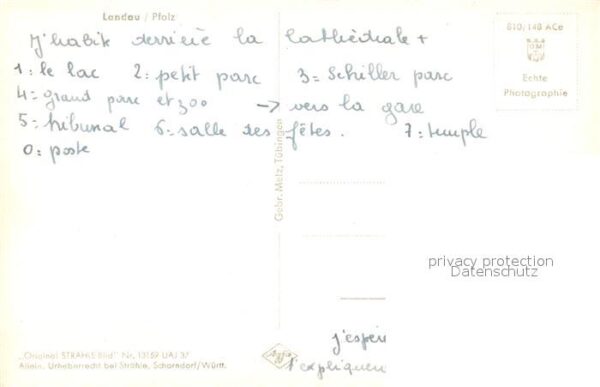 Landau / Pfalz
J'habite derrière la cathédrale +
1: le lac 2: petit parc 3= Schiller parc
4= grand parc et zoo → vers la gare
5: tribunal 6= salle des fêtes. 7: temple
0: poste
810/148 ACe
Echte
Photographie
Gebr. Metz, Tübingen
privacy protection
Datenschutz
j'espèr
t'expliquer
„Original STRÄHLE Bild" Nr. 13169 UA/3°
Allein. Urheberrecht bei Strähle, Schorndorf/Württ.
Agfa